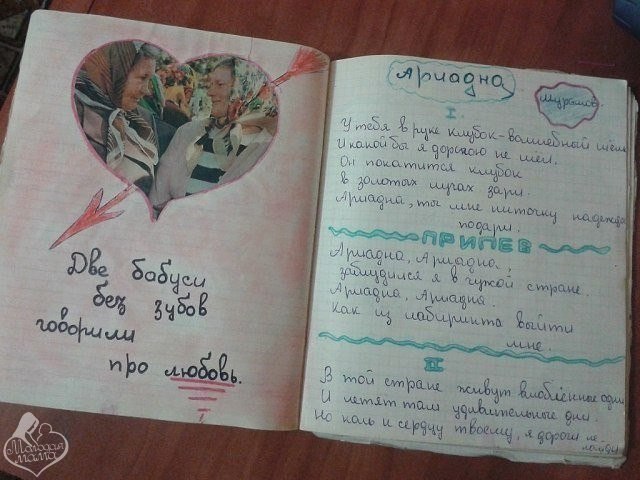 Две бабуси
без зубов
говорили
про любовь.
Ариадна
Мурашов.
I
У тебя в руке клубок-волшебный шёлк
И какой бы я дорогою не шёл,
Он покатится клубок
в золотых лучах зари.
Ариадна, ты мне ниточку надежды
подари.
ПРИПЕВ
Ариадна, Ариадна,
заблудился я в чужой стране.
Ариадна, Ариадна.
Как из лабиринта выйти
мне.
II
В той стране живут влюблённые одни
И летят там удивительные дни.
Но коль к сердцу твоему, я дороги не
найду
Молодая
мама